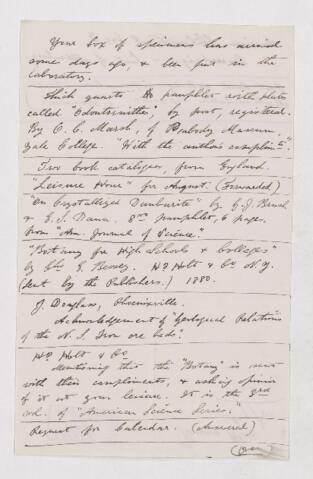 Your box of specimens has arrived
some days ago, & been put in the
laboratory.
Thick quarto pamphlet with plates
called "Odontornithes", by post, registered.
By O. C. Marsh, of Peabody Museum,
Yale College. "With the author's compliments".
Two book catalogues, from England.
"Leisure Hour" for August. (Forwarded)
"On Crystallized Danburite" by G. J. Brush
& E. S. Dana. 8vo pamphlet, 6 pages.
from "Am. Journal of Science".
"Botany for High Schools & Colleges"
by C. E. Bessey. Hy Holt & Co N.Y.
(Sent by the Publishers.) 1880.
J. Douglass, Phoenixville.
Acknowledgement of "Geological Relations
of the N. S. Iron ore beds".
Hy Holt & Co
Mentioning that the "Botany" is sent
with their compliments, & asking opinion
of it at your leisure. It is the 3rd
vol. of "American Science Series".
Request for Calendar. (Answered)
(over)